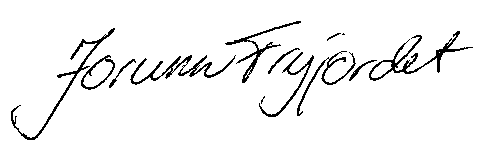 Jorunn Frøyjordet